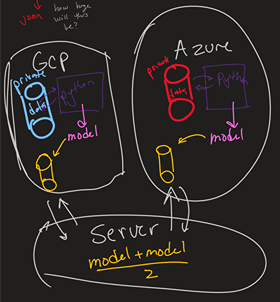 how huge
json will this
be?
GCP
Azure
private
data
Python
model
private
data
Python
model
Server
model + model
2